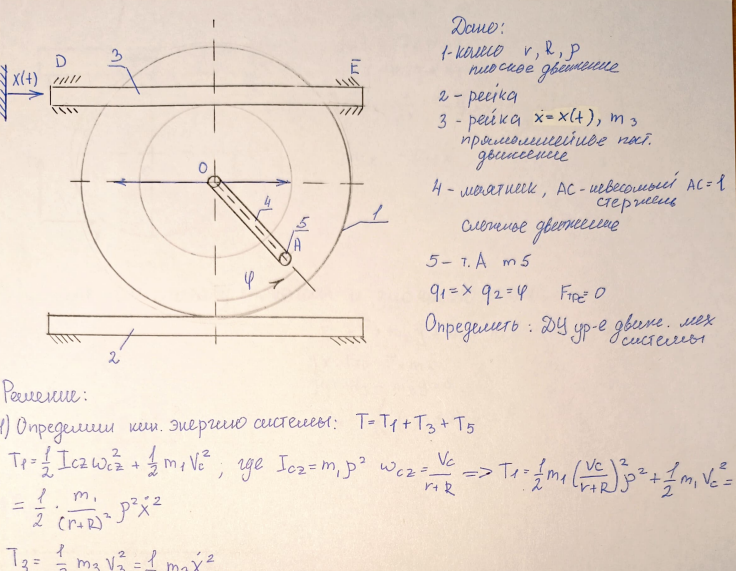 Дано:
1-колесо r, R, ρ
плоское движение
2 - рейка
3 - рейка x = x(t), m3
прямолинейное пост.
движение
4 - маятник, AC - невесомый AC = l
стержень
сложное движение
5 - т. A m5
q1 = x q2 = φ Fтр = 0
Определить: ДУ ур-е движ. мех
системы
D
3
E
x(t)
O
4
5
A
1
φ
2
Решение:
1) Определим кин. энергию системы: T = T1 + T3 + T5
T1 = 1/2 Icz ωcz² + 1/2 m1 Vc² ; где Icz = m1 ρ² ωcz = Vc/(r+R) => T1 = 1/2 m1 (Vc/(r+R))² ρ² + 1/2 m1 Vc² =
= 1/2 · m1/(r+R)² ρ² ẋ²
T3 = 1/2 m3 V3² = 1/2 m3 ẋ²